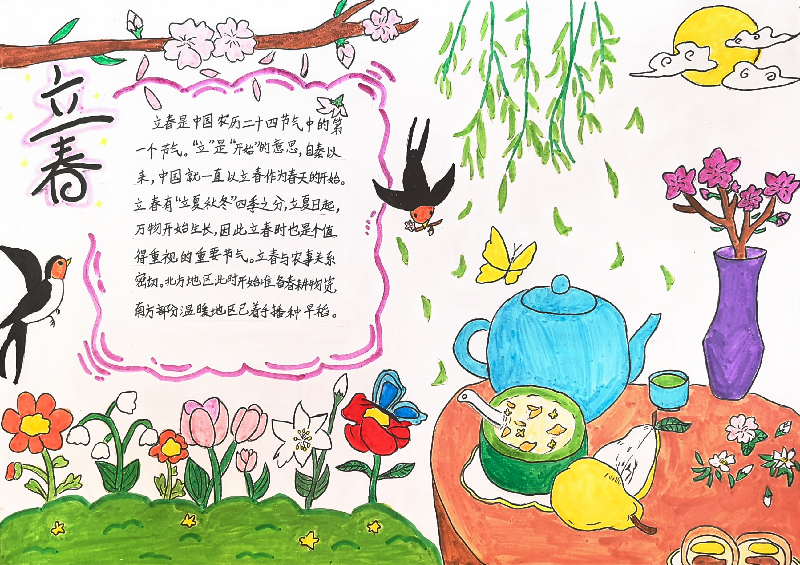 立春
立春是中国农历二十四节气中的第
一个节气。“立”是“开始”的意思，自秦以
来，中国就一直以立春作为春天的开始。
立春有“立夏秋冬”四季之分，立夏日起，
万物开始生长，因此立春时也是个值
得重视的重要节气。立春与农事关系
密切。北方地区此时开始准备春耕物资，
南方部份温暖地区已着手播种早稻。